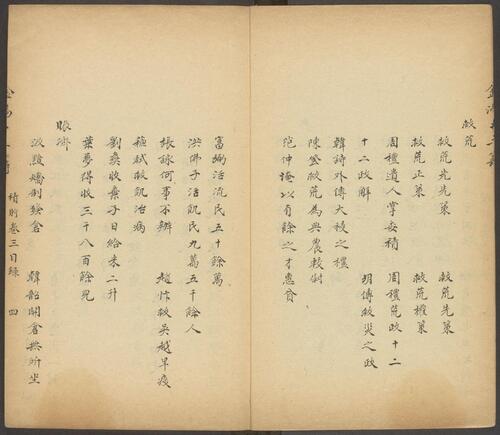 救荒
救荒先先策 救荒先策
救荒正策 救荒權策
周禮遺人掌委積 周禮荒政十二
十二政解 胡傳救災之政
韓詩外傳大祲之禮
陳登救荒為典農校尉
范仲淹以有餘之才惠貧
富弼活流民五十餘萬
洪佛子活飢民九萬五千餘人
張詠何事不辦 趙忭救吳越旱疫
蘓軾救飢治病
劉彛收棄子日給米二升
葉夢得收三千八百餘兒
賑濟
汲黯矯制發倉 韓韶開倉無所坐
積貯卷三目錄 四